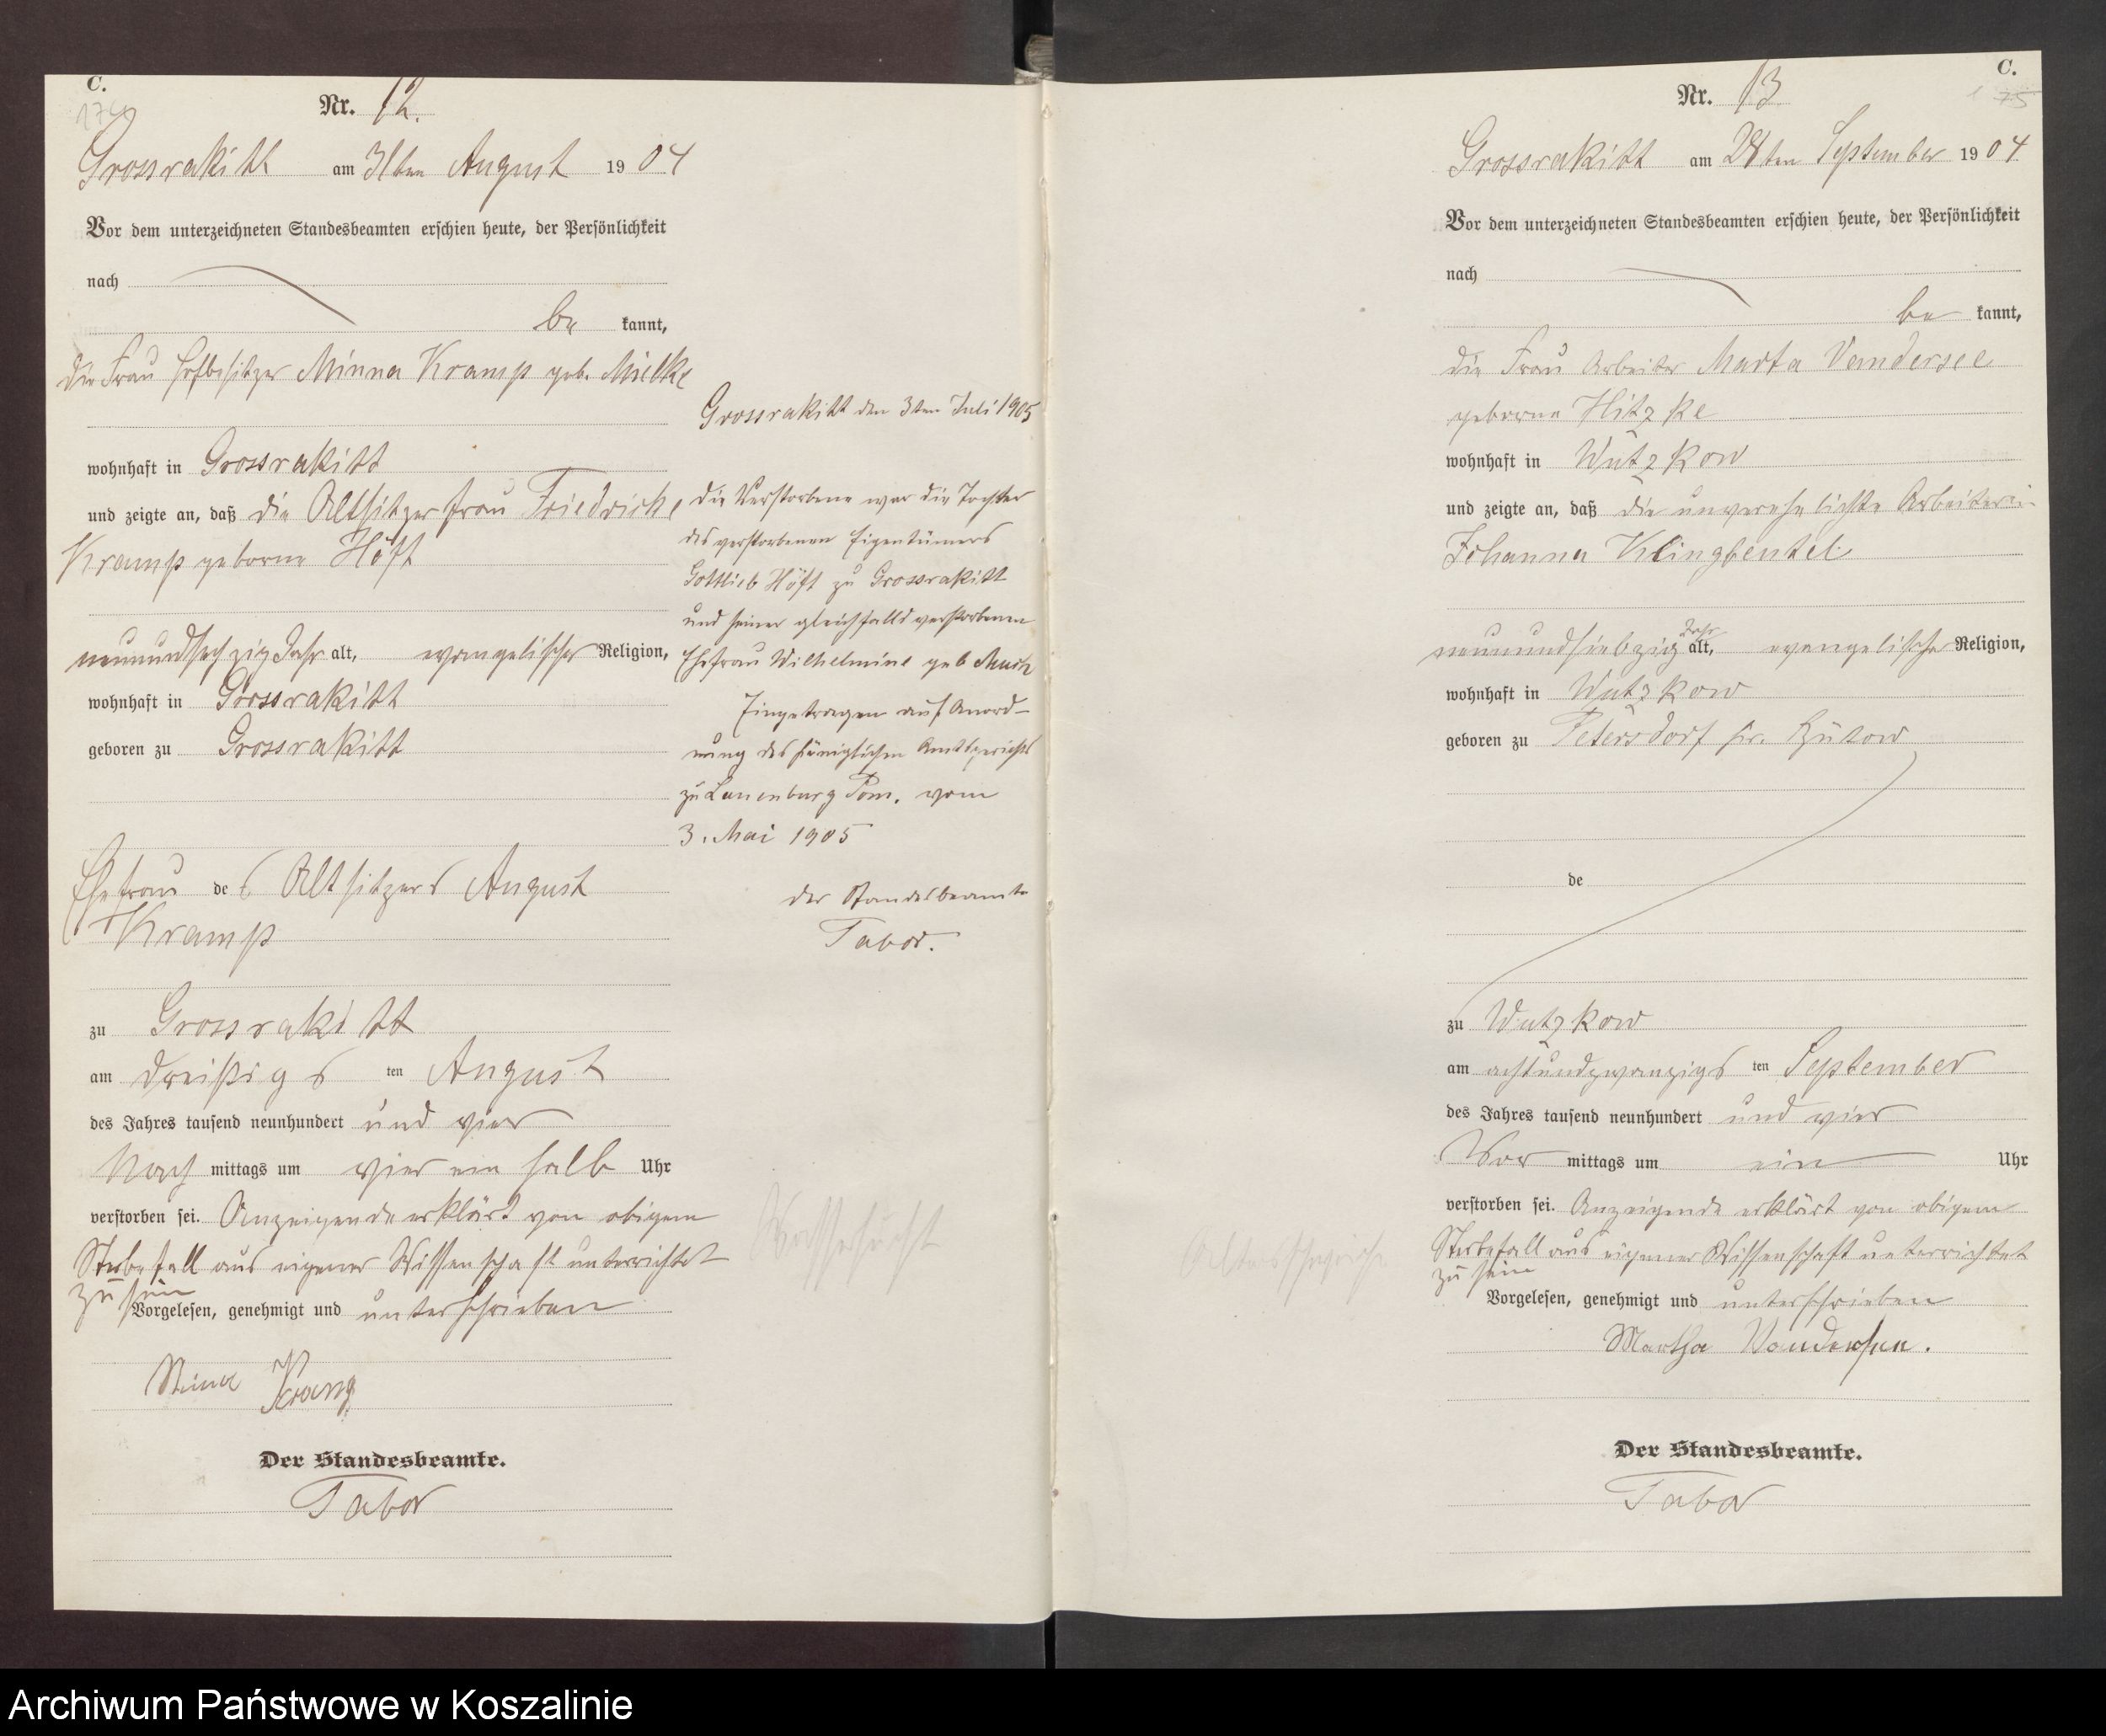 C.
Nr. 12.
Grossrakitt am 31ten August 1904
Vor dem unterzeichneten Standesbeamten erschien heute, der Persönlichkeit
nach
be kannt,
die Frau Hofbesitzer Minna Kramp geb. Mielke
wohnhaft in Grossrakitt
und zeigte an, daß die Altsitzerfrau Friedrike
Kramp geborne Höft
neunundsechzig Jahr alt, evangelischer Religion,
wohnhaft in Grossrakitt
geboren zu Grossrakitt
Ehefrau des Altsitzers August
Kramp
zu Grossrakitt
am dreißigsten August
des Jahres tausend neunhundert und vier
Nach mittags um vier ein halb Uhr
verstorben sei. Anzeigende erklärt von obigem
Sterbefall aus eigener Wissenschaft unterrichtet
zu sein
Vorgelesen, genehmigt und unterschrieben
Mina Kramp
Der Standesbeamte.
Tabor
Grossrakitt den 3ten Juli 1905
Die Verstorbene war die Tochter
des verstorbenen Eigentümers
Gottlieb Höft zu Grossrakitt
und seiner gleichfalls verstorbenen
Ehefrau Wilhelmine geb
Eingetragen auf Anord-
nung des Königlichen Amtsgerichts
zu Lauenburg Pom. vom
3. Mai 1905
der Standesbeamte
Tabor.
Wassersucht
C.
Nr. 13
Grossrakitt am 28ten September 1904
Vor dem unterzeichneten Standesbeamten erschien heute, der Persönlichkeit
nach
be kannt,
die Frau Arbeiter Marta Vandersee
geborne Hitzke
wohnhaft in Wutzkow
und zeigte an, daß die unverehelichte Arbeiterin
Johanna Klingbeutel
neunundsiebzig Jahr alt, evangelische Religion,
wohnhaft in Wutzkow
geboren zu Petersdorf Kr. Bütow
de
zu Wutzkow
am achtundzwanzigsten September
des Jahres tausend neunhundert und vier
Vor mittags um ein Uhr
verstorben sei. Anzeigende erklärt von obigem
Sterbefall aus eigener Wissenschaft unterrichtet
zu sein
Vorgelesen, genehmigt und unterschrieben
Martha Vandersee.
Der Standesbeamte.
Tabor
Altersschwäche
Archiwum Państwowe w Koszalinie